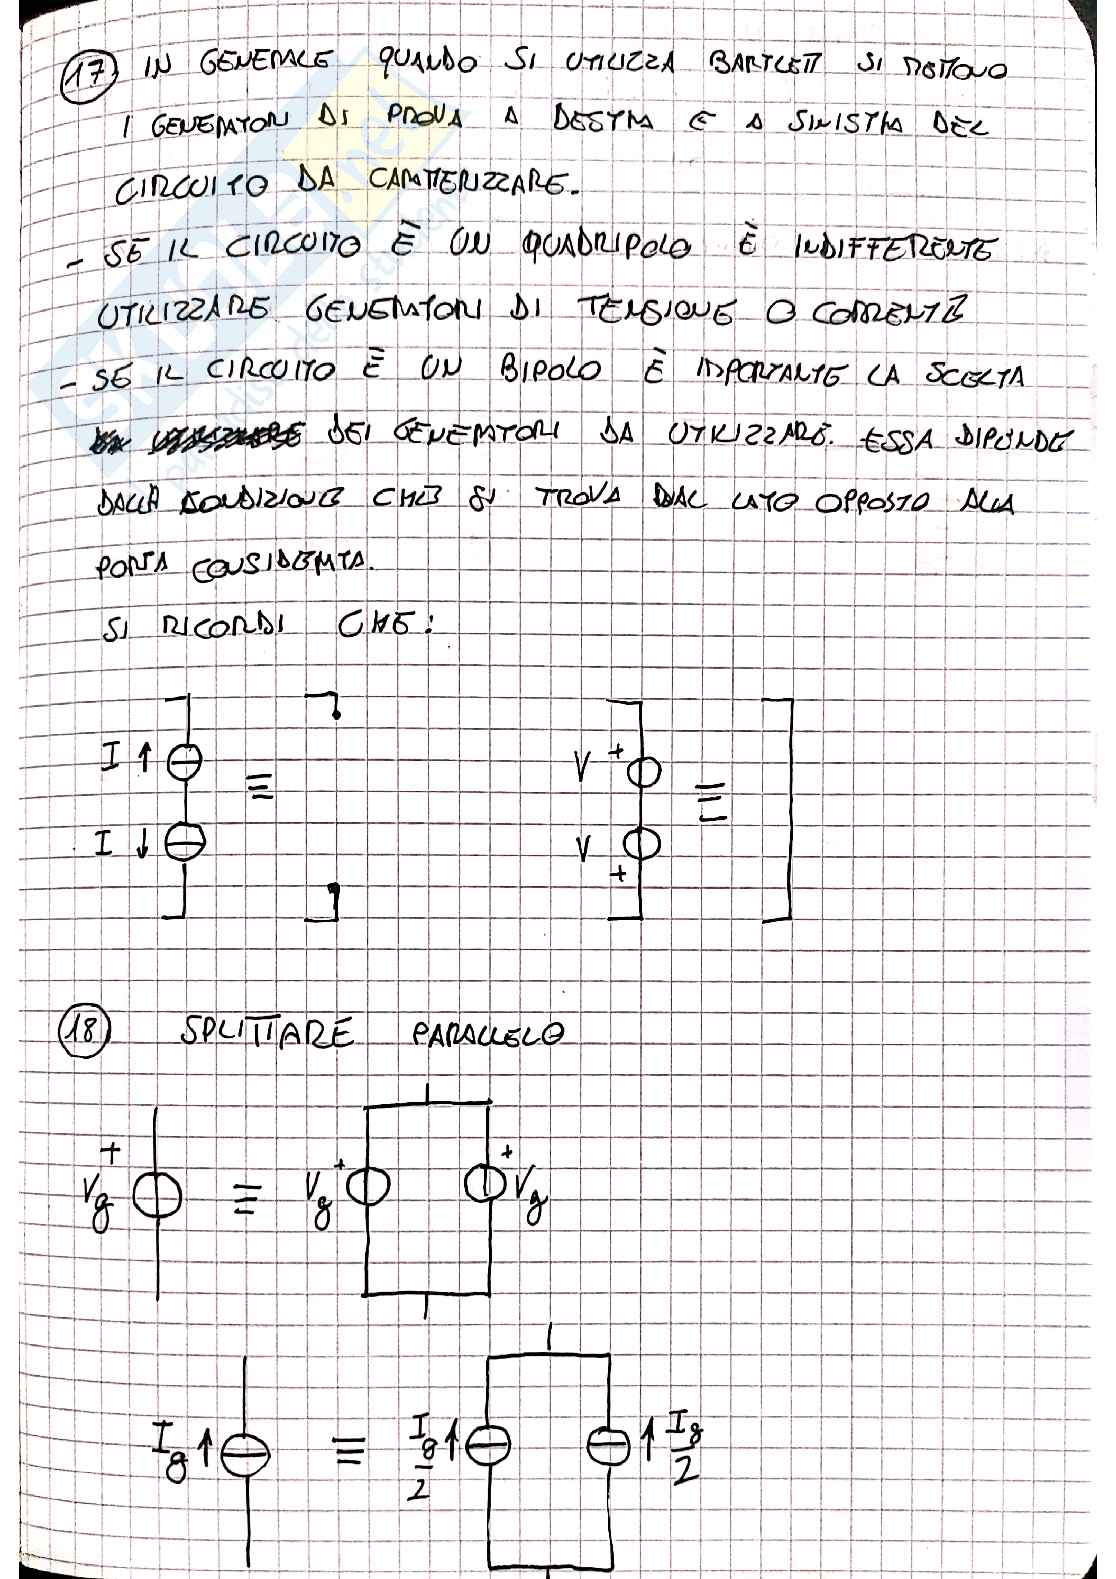 17) IN GENERALE QUANDO SI UTILIZZA BARTLETT SI METTONO
I GENERATORI DI PROVA A DESTRA E A SINISTRA DEL
CIRCUITO DA CARATTERIZZARE.
- SE IL CIRCUITO È UN QUADRIPOLO È INDIFFERENTE
UTILIZZARE GENERATORI DI TENSIONE O CORRENTE
- SE IL CIRCUITO È UN BIPOLO È IMPORTANTE LA SCELTA
DEI GENERATORI DA UTILIZZARE. ESSA DIPENDE
DALLA CONDIZIONE CHE SI TROVA DAL LATO OPPOSTO ALLA
PORTA CONSIDERATA.
SI RICORDI CHE:
I ↑ ≡ V + ≡
I ↓ V +
18 SPLITTARE PARALLELO
+ Vg ≡ Vg + + Vg
Ig ↑ ≡ Ig/2 ↑ ↑ Ig/2